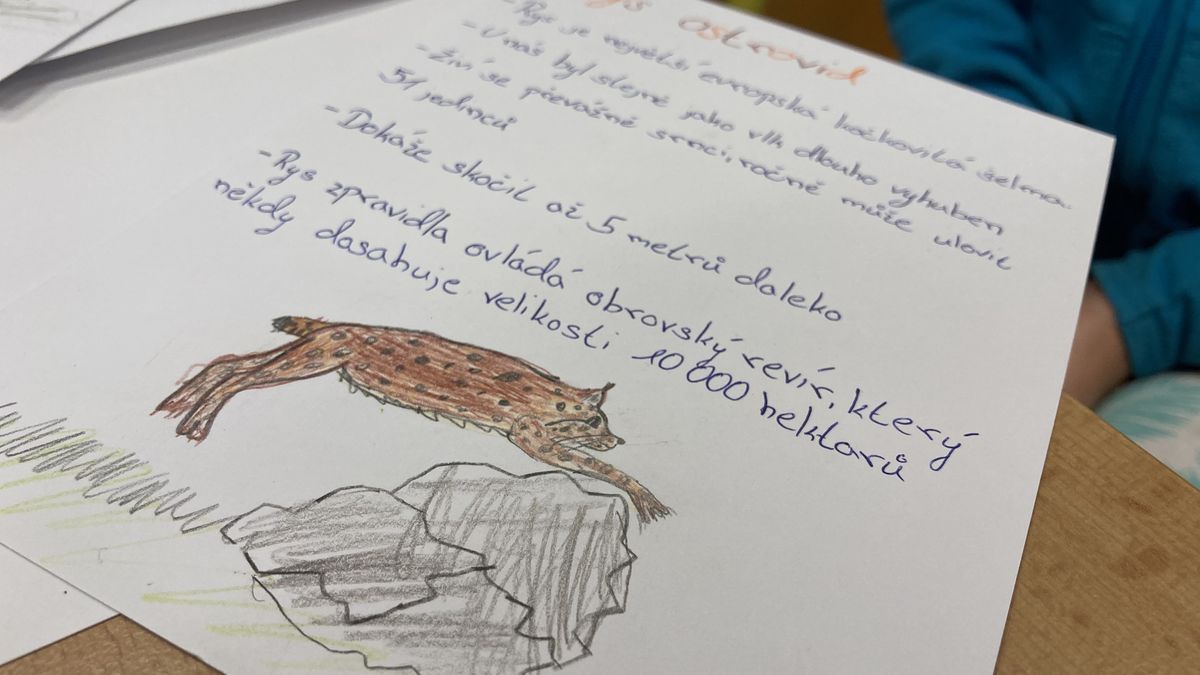 Rys ostrovid
- Rys je největší evropská kočkovitá šelma.
- U nás byl stejně jako vlk dlouho vyhuben
- Živí se převážně srnci, ročně může ulovit
51 jedinců
- Dokáže skočit až 5 metrů daleko
- Rys zpravidla ovládá obrovský revír, který
někdy dasahuje velikosti 10 000 hektarů